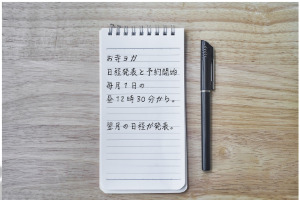 お寺ヨガ
日程発表と予約開始
毎月1日の
昼12時30分から。
翌月の日程が発表。